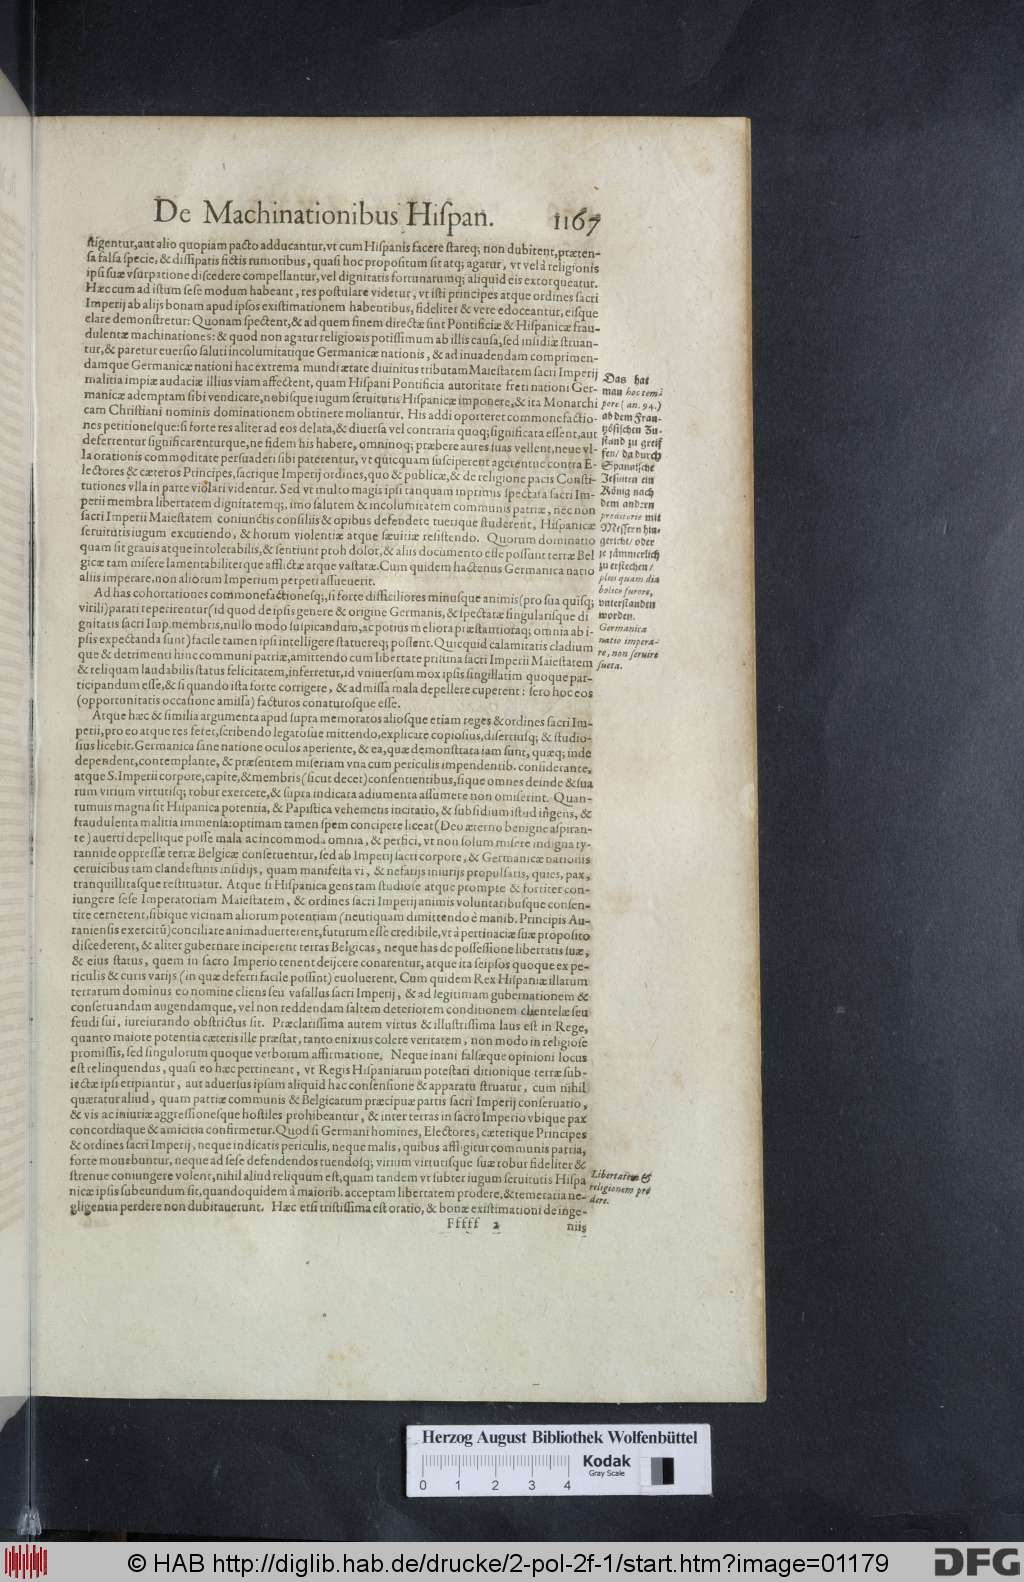 De Machinationibus Hiſpan. 1167
ſtigentur, aut alio quopiam pacto adducantur, vt cum Hiſpanis facere ſtareq; non dubitent, præten-
ſa falſa ſpecie, & diſſipatis fictis rumoribus, quaſi hoc propoſitum ſit atq; agatur, vt vel à religionis
ipſi ſuæ vſurpatione diſcedere compellantur, vel dignitatis fortunarumq; aliquid eis extorqueatur.
Hæc cum ad iſtum ſeſe modum habeant, res poſtulare videtur, vt iſti principes atque ordines ſacri
Imperij ab alijs bonam apud ipſos exiſtimationem habentibus, fideliter & vere edoceantur, eiſque
clare demonſtretur: Quonam ſpectent, & ad quem finem directæ ſint Pontificiæ & Hiſpanicæ frau-
dulentæ machinationes: & quod non agatur religionis potiſſimum ab illis cauſa, ſed inſidiæ ſtruan-
tur, & paretur euerſio ſaluti incolumitatique Germanicæ nationis, & ad inuadendam comprimen-
damque Germanicæ nationi hac extrema mundi ætate diuinitus tributam Maieſtatem ſacri Imperij
malitia impiæ audaciæ illius viam affectent, quam Hiſpani Pontificia autoritate freti nationi Ger-
manicæ ademptam ſibi vendicare, nobiſque iugum ſeruitutis Hiſpanicæ imponere, & ita Monarchi
cam Chriſtiani nominis dominationem obtinere moliantur. His addi oporteret commonefactio-
nes petitioneſque: ſi forte res aliter ad eos delata, & diuerſa vel contraria quoq; ſignificata eſſent, aut
deferrentur ſignificarenturque, ne fidem his habere, omninoq; præbere aures ſuas vellent, neue vl-
la orationis commoditate perſuaderi ſibi paterentur, vt quicquam ſuſciperent agerentue contra E-
lectores & cæteros Principes, ſacrique Imperij ordines, quo & publicæ, & de religione pacis Conſti-
tutiones vlla in parte violari videntur. Sed vt multo magis ipſi tanquam inprimis ſpectata ſacri Im-
perij membra libertatem dignitatemq;, imo ſalutem & incolumitatem communis patriæ, nec non
ſacri Imperii Maieſtatem coniunctis conſiliis & opibus defendere tuerique ſtuderent, Hiſpanicæ
ſeruitutis iugum excutiendo, & horum violentiæ atque ſæuitiæ reſiſtendo. Quorum dominatio
quam ſit grauis atque intolerabilis, & ſentiunt proh dolor, & aliis documento eſſe poſſunt terræ Bel
gicæ tam miſere lamentabiliterque afflictæ atque vaſtatæ. Cum quidem hactenus Germanica natio
aliis imperare, non aliorum Imperium perpeti aſſueuerit.
Ad has cohortationes commonefactioneſq;, ſi forte difficiliores minuſque animis (pro ſua quiſq;
virili) parati reperirentur (id quod de ipſis genere & origine Germanis, & ſpectatæ ſingulariſque di
gnitatis ſacri Imp. membris, nullo modo ſuſpicandum, ac potius meliora præſtantioraq; omnia ab i-
pſis expectanda ſunt) facile tamen ipſi intelligere ſtatuereq; poſſent. Quicquid calamitatis cladium
que & detrimenti hinc communi patriæ, amittendo cum libertate priſtina ſacri Imperii Maieſtatem
& reliquam laudabilis ſtatus felicitatem, inferretur, id vniuerſum mox ipſis ſingillatim quoque par-
ticipandum eſſe, & ſi quando iſta forte corrigere, & admiſſa mala depellere cuperent: ſero hoc eos
(opportunitatis occaſione amiſſa) facturos conaturoſque eſſe.
Atque hæc & ſimilia argumenta apud ſupra memoratos alioſque etiam reges & ordines ſacri Im-
perii, pro eo atque res feret, ſcribendo legatoſue mittendo, explicare copioſius, diſertiuſq; & ſtudio-
ſius licebit. Germanica ſane natione oculos aperiente, & ea, quæ demonſtrata iam ſunt, quæq; inde
dependent, contemplante, & præſentem miſeriam vna cum periculis impendentib. conſiderante,
atque S. Imperii corpore, capite, & membris (ſicut decet) conſentientibus, ſique omnes deinde & ſua
rum virium virtutiſq; robur exercere, & ſupra indicata adiumenta aſſumere non omiſerint. Quan-
tumuis magna ſit Hiſpanica potentia, & Papiſtica vehemens incitatio, & ſubſidium iſtud ingens, &
fraudulenta malitia immenſa: optimam tamen ſpem concipere liceat (Deo æterno benigne aſpiran-
te) auerti depellique poſſe mala ac incommoda omnia, & perfici, vt non ſolum miſere indigna ty-
rannide oppreſſæ terræ Belgicæ conſeruentur, ſed ab Imperij ſacri corpore, & Germanicæ nationis
ceruicibus tam clandeſtinis inſidijs, quam manifeſta vi, & nefarijs iniurijs propulſatis, quies, pax,
tranquillitaſque reſtituatur. Atque ſi Hiſpanica gens tam ſtudioſe atque prompte & fortiter con-
iungere ſeſe Imperatoriam Maieſtatem, & ordines ſacri Imperij animis voluntatibuſque conſen-
tire cernerent, ſibique vicinam aliorum potentiam (neutiquam dimittendo è manib. Principis Au-
ranienſis exercitũ) conciliare animaduerterent, futurum eſſe credibile, vt à pertinaciæ ſuæ propoſito
diſcederent, & aliter gubernare inciperent terras Belgicas, neque has de poſſeſſione libertatis ſuæ,
& eius ſtatus, quem in ſacro Imperio tenent deijcere conarentur, atque ita ſeipſos quoque ex pe-
riculis & curis varijs (in quæ deferri facile poſſint) euoluerent. Cum quidem Rex Hiſpaniæ illarum
terrarum dominus eo nomine cliens ſeu vaſallus ſacri Imperij, & ad legitimam gubernationem &
conſeruandam augendamque, vel non reddendam ſaltem deteriorem conditionem clientelæ ſeu
feudi ſui, iureiurando obſtrictus ſit. Præclariſſima autem virtus & illuſtriſſima laus eſt in Rege,
quanto maiore potentia cæteris ille præſtat, tanto enixius colere veritatem, non modo in religioſe
promiſſis, ſed ſingulorum quoque verborum affirmatione. Neque inani falſæque opinioni locus
eſt relinquendus, quaſi eo hæc pertineant, vt Regis Hiſpaniarum poteſtati ditionique terræ ſub-
iectæ ipſi eripiantur, aut aduerſus ipſum aliquid hac conſenſione & apparatu ſtruatur, cum nihil
quæratur aliud, quam patriæ communis & Belgicarum præcipuæ partis ſacri Imperij conſeruatio,
& vis ac iniuriæ aggreſſioneſque hoſtiles prohibeantur, & inter terras in ſacro Imperio vbique pax
concordiaque & amicitia confirmetur. Quod ſi Germani homines, Electores, cæterique Principes
& ordines ſacri Imperij, neque indicatis periculis, neque malis, quibus affligitur communis patria,
forte mouebuntur, neque ad ſeſe defendendos tuendoſq; virium virtutiſque ſuæ robur fideliter &
ſtrenue coniungere volent, nihil aliud reliquum eſt, quam tandem vt ſubter iugum ſeruitutis Hiſpa
nicæ ipſis ſubeundum ſit, quandoquidem à maiorib. acceptam libertatem prodere, & temeraria ne-
gligentia perdere non dubitauerunt. Hæc etſi triſtiſſima eſt oratio, & bonæ exiſtimationi de inge-
Fffff 2 niis
Das hat
man hoc tem-
pore (an. 94.)
ab dem Fran-
tzöſiſchen Zu-
ſtand zu greif
fen / da durch
Spaniſche
Jeſuiten ein
König nach
dem andern
proditorie mit
Meſſern hin-
gericht / oder
je jämmerlich
zu erſtechen /
plus quam dia
bolico furore,
vnterſtanden
worden.
Germanica
natio impera-
re, non ſeruire
ſueta.
Libertatem &
religionem pro
dere.
Herzog August Bibliothek Wolfenbüttel
Kodak
Gray Scale
0 1 2 3 4
© HAB http://diglib.hab.de/drucke/2-pol-2f-1/start.htm?image=01179
DFG